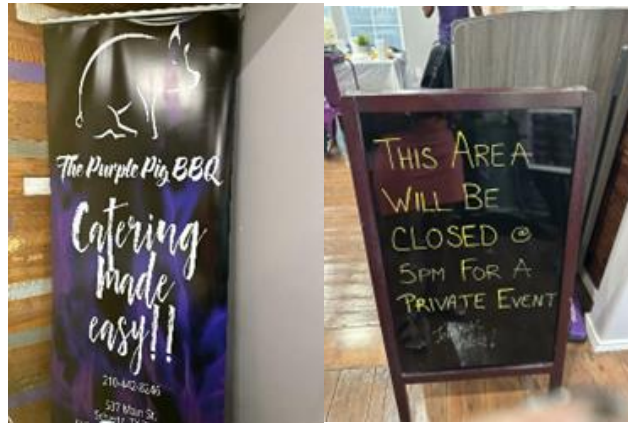 The Purple Pig BBQ
Catering
Made
easy!!
210-442-8246
537 Main St.
THIS AREA
WILL BE
CLOSED @
5PM FOR A
PRIVATE EVENT